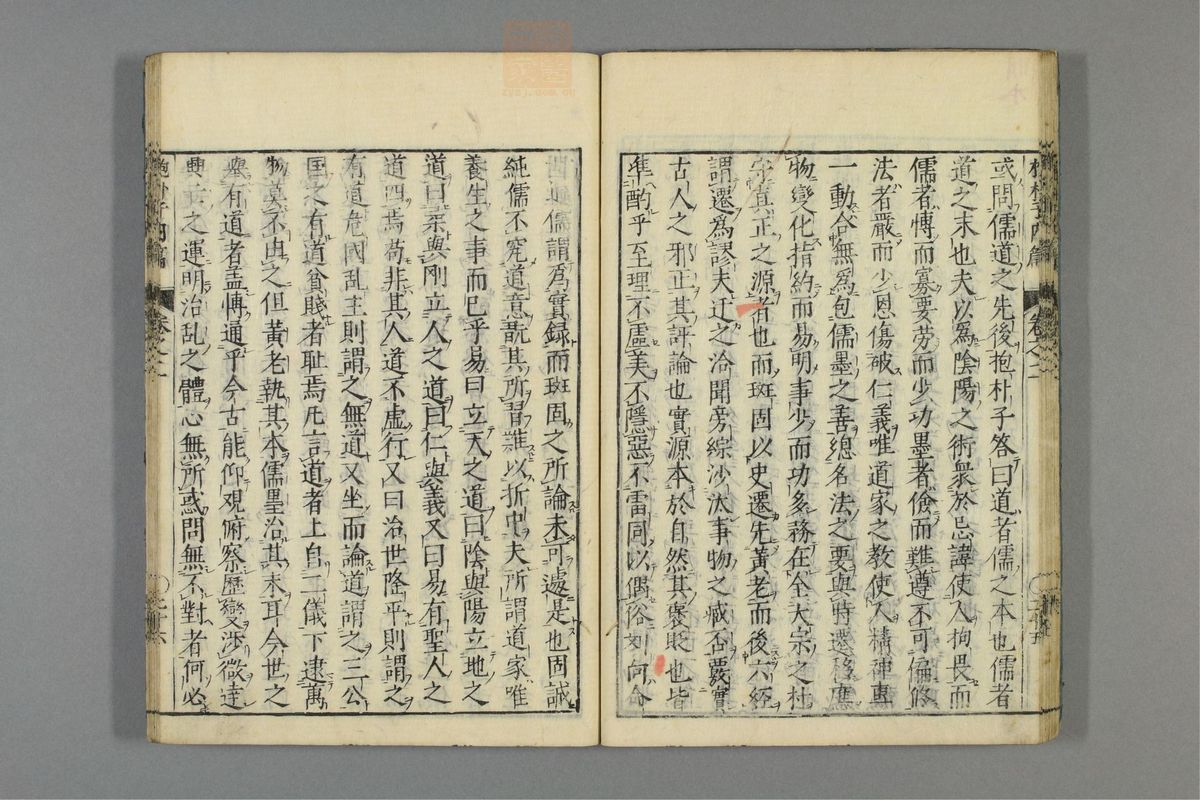 或問儒道之先後抱朴子答曰道者儒之本也儒者
道之末也夫以為陰陽之術衆於忌諱使人拘畏而
儒者博而寡要勞而少功墨者儉而難遵不可偏修
法者嚴而少恩傷破仁義唯道家之教使人精神專
一動合無為包儒墨之善總名法之要與時遷移應
物變化指約而易明事少而功多務在全大宗之朴
守真正之源者也而班固以史遷先黃老而後六經
謂遷為謬夫遷之洽聞旁綜沙汰事物之臧否覈實
古人之邪正其評論也實源本於自然其褒貶也皆
準酌乎至理不虛美不隱惡不雷同以偶俗劉向命
世通儒謂為實録而班固之所論未可處是也固誠
純儒不究道意翫其所習難以折中夫所謂道家唯
養生之事而已乎易曰立天之道曰陰與陽立地之
道曰柔與剛立人之道曰仁與義又曰易有聖人之
道四焉苟非其人道不虛行又曰治世隆平則謂之
有道危國乱主則謂之無道又坐而論道謂之三公
国之有道貧賤者耻焉凡言道者上自二儀下逮萬
物莫不由之但黃老執其本儒墨治其末耳今世之
舉有道者盖博通乎今古能仰觀俯察歷變渉微達
興亡之運明治乱之體心無所惑問無不對者何必
抱朴子内篇
卷之二